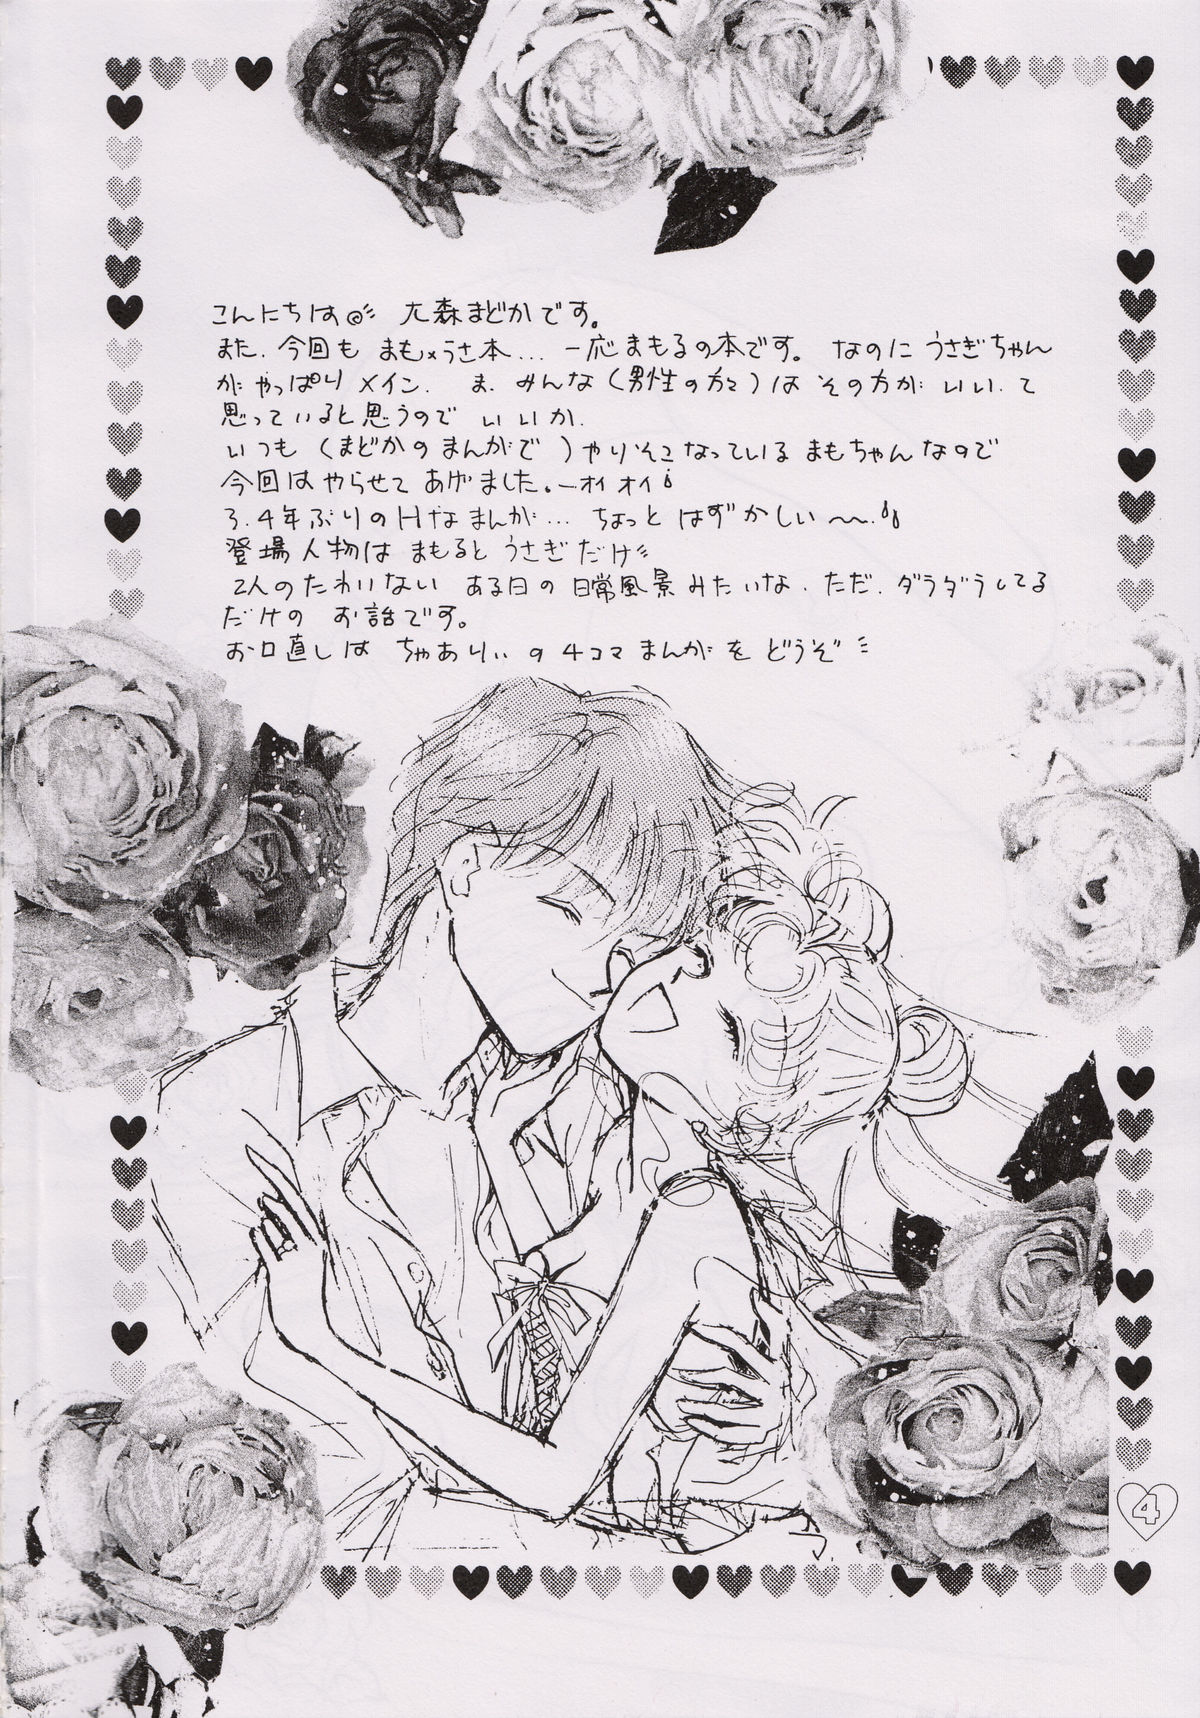 こんにちは 大森まどかです。
また、今回も まも×うさ本… 一応まもるの本です。 なのに うさぎちゃん
が やっぱり メイン. ま、みんな(男性の方々)は その方が いい、て
思っていると思うので いいか.
いつも (まどかのまんがで)やりそこなっているまもちゃんなので
今回は やらせて あげました。―オイオイ
3.4年ぶりのHなまんが… ちょっと はずかしい〜.
登場人物は まもると うさぎだけ
2人のたわいない ある日の日常風景みたいな、ただ、ダラダラしてる
だけの お話です。
お口直しは ちゃありぃの4コマまんがを どうぞ
4